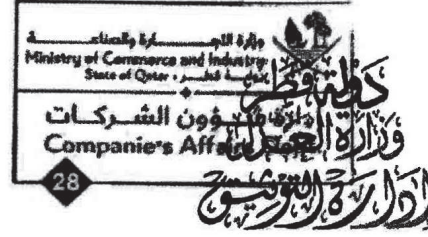 وزارة التجارة والصناعة
Ministry of Commerce and Industry
State of Qatar • دولة قطر
إدارة شؤون الشركات
Companie's Affairs
28
دولة قطر
وزارة العدل
إدارة التوثيق